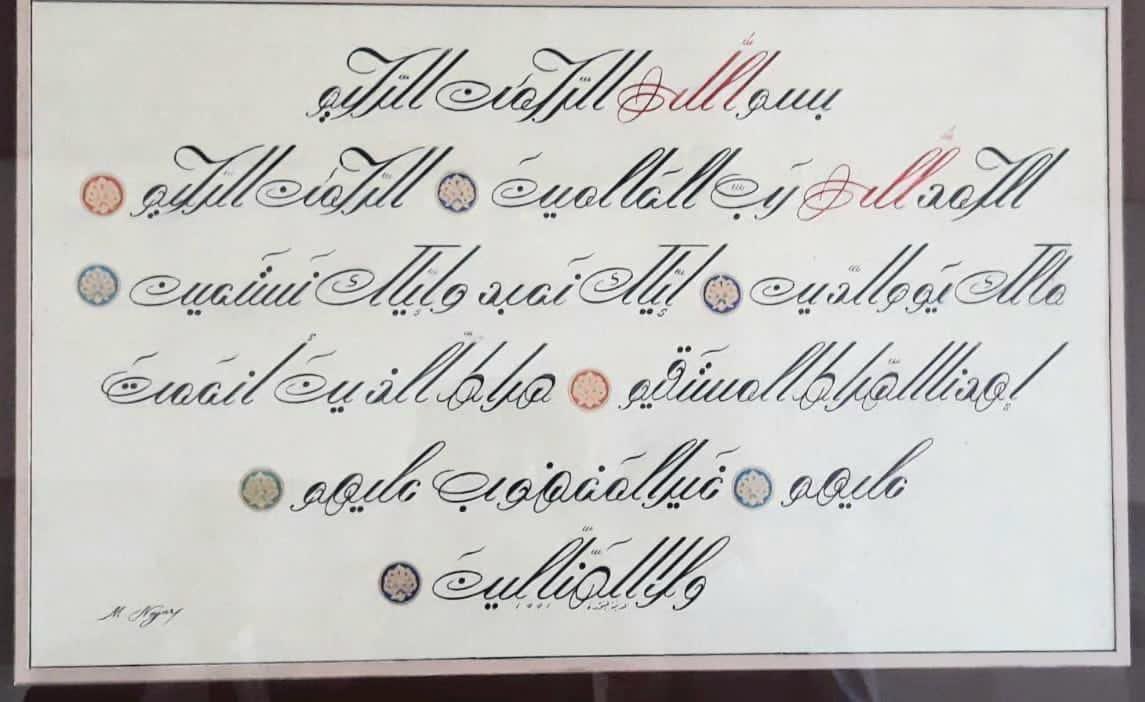 بسم اللّٰه الرّحمن الرّحيم
الحمد للّٰه ربّ العالمينَ الرّحمن الرّحيم
مالك يوم الدّين إيّاك نعبد وإيّاك نستعين
إهدنا الصّراط المستقيم صراط الّذين أنعمتَ
عليهم غير المغضوب عليهم
ولا الضّآلّينَ
M Nagary